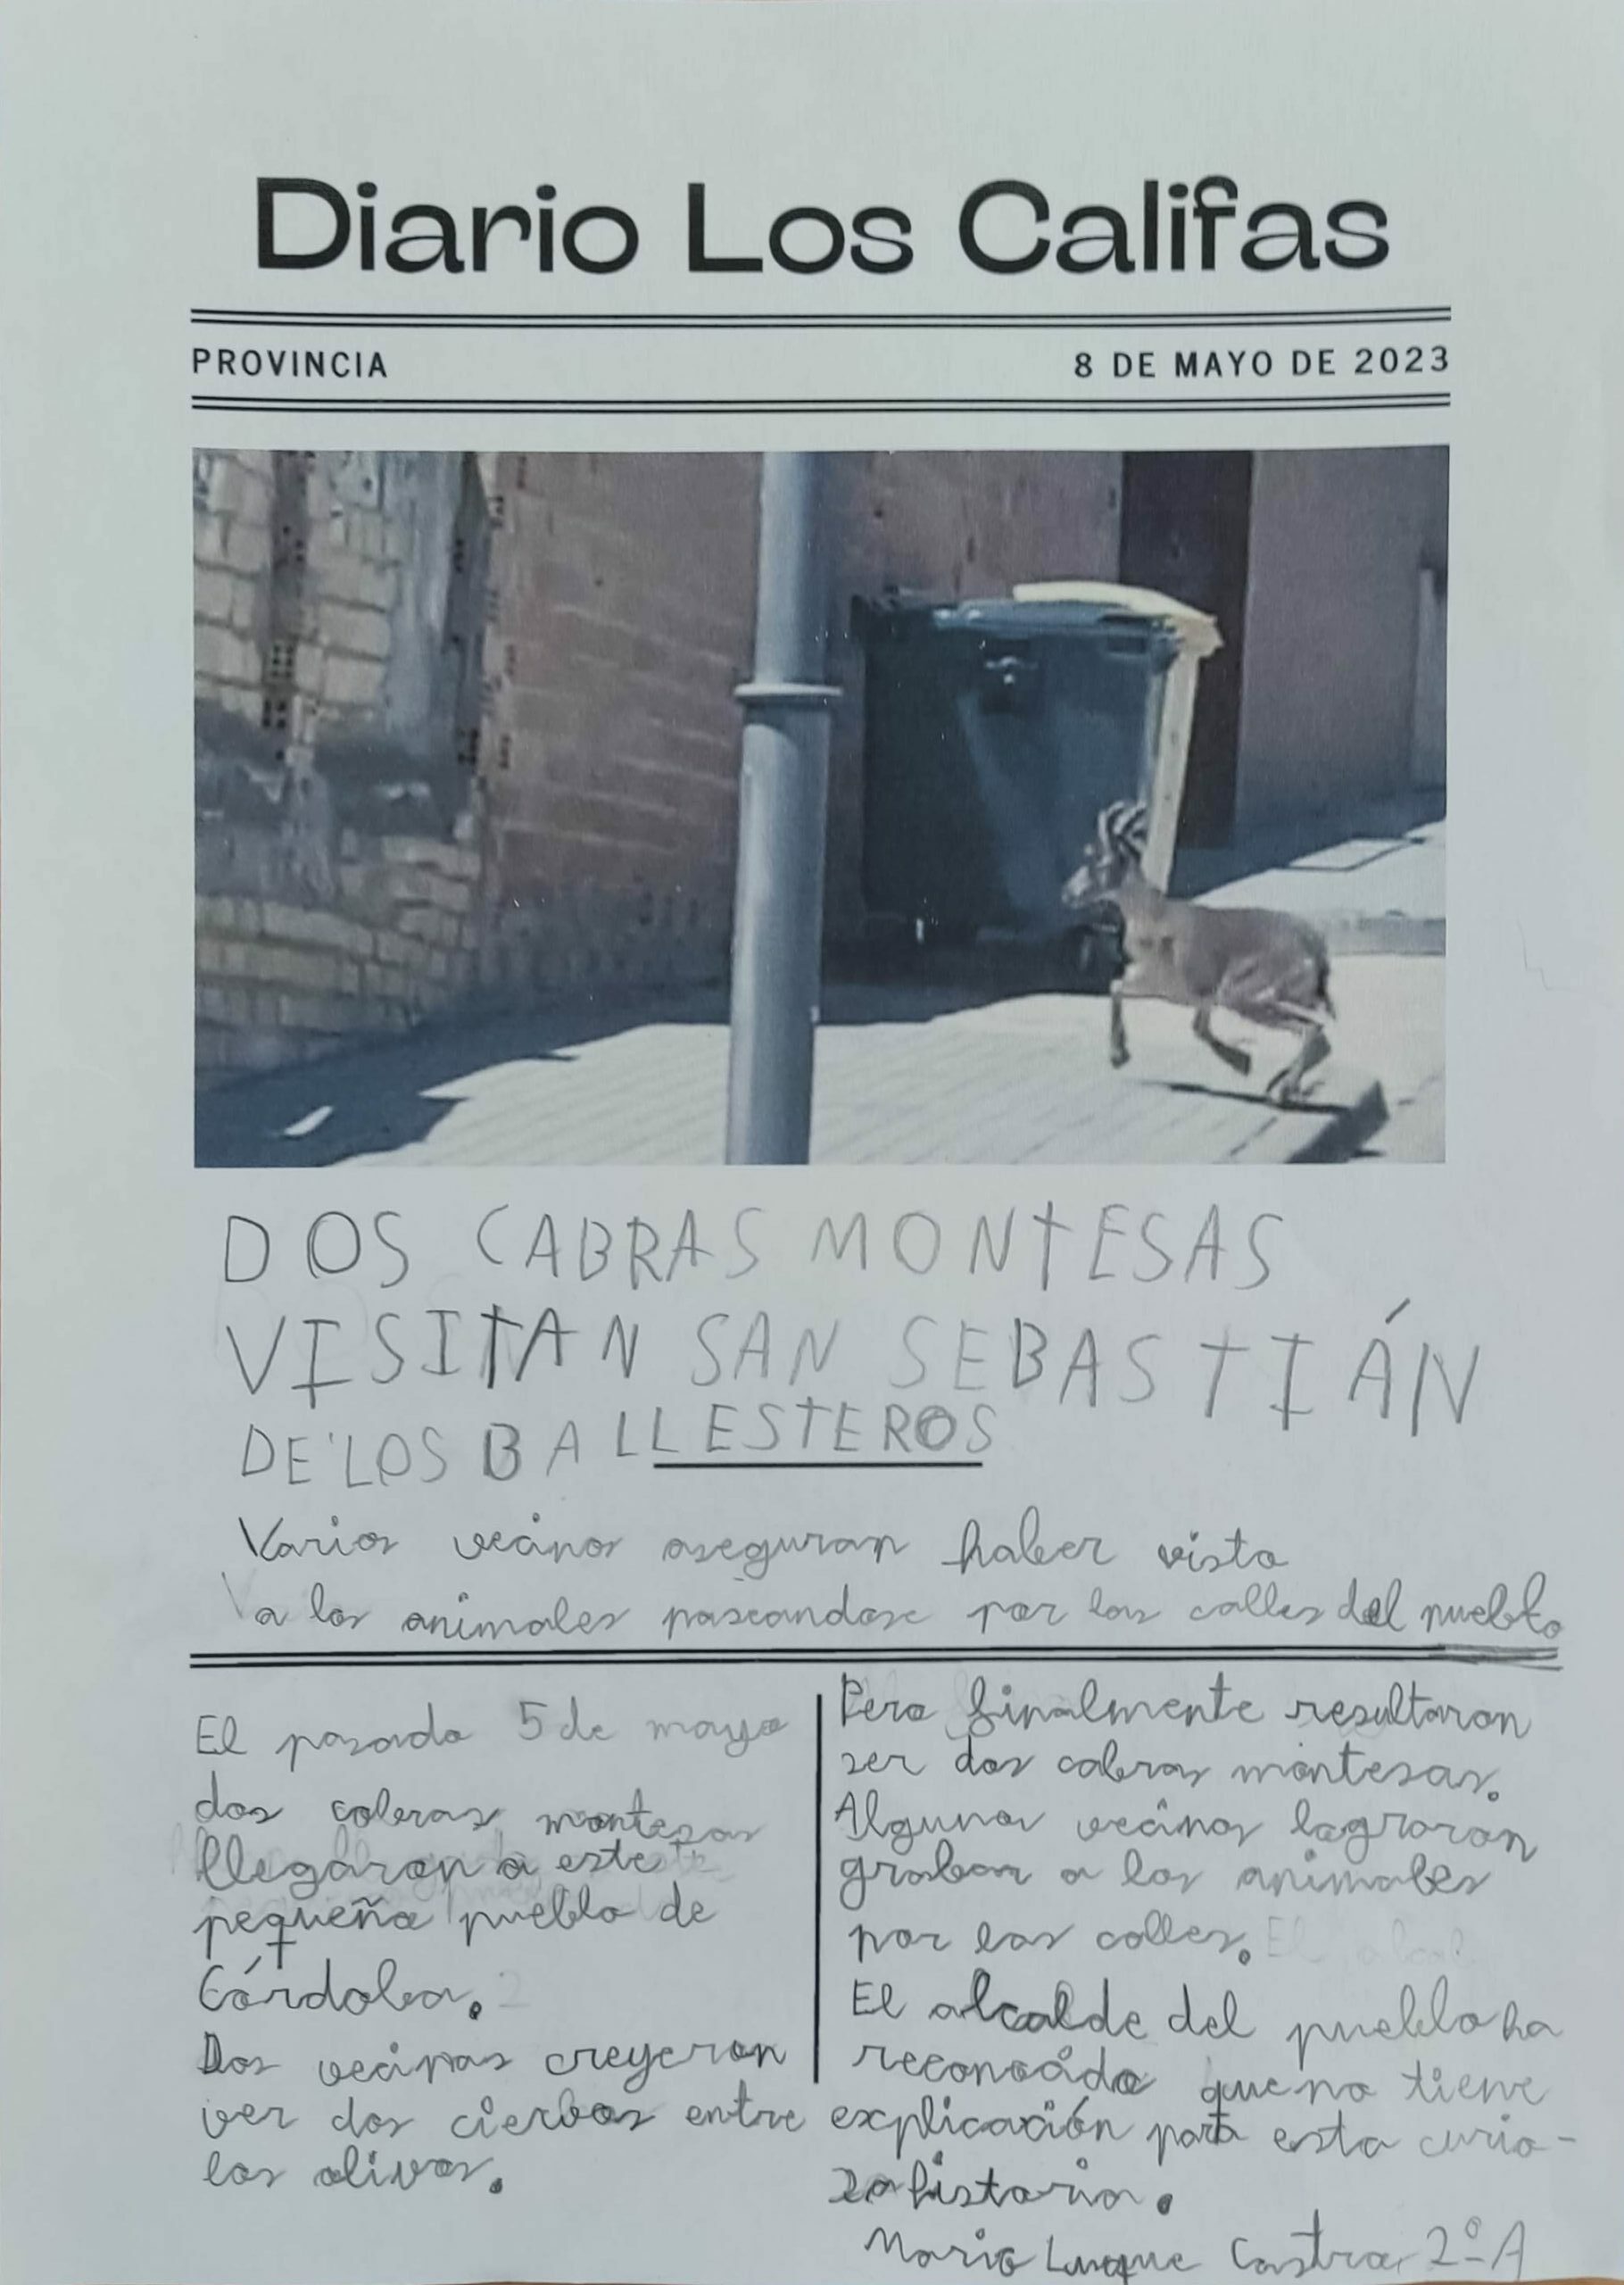 Diario Los Califas
PROVINCIA
8 DE MAYO DE 2023
DOS CABRAS MONTESAS
VISITAN SAN SEBASTIÁN
DE LOS BALLESTEROS
Varios vecinos aseguran haber visto
a los animales paseandose por las calles del pueblo
El pasado 5 de mayo
dos cabras montesas
llegaron a este
pequeño pueblo de
Córdoba.
Dos vecinas creyeron
ver dos ciervos entre
los olivos.
Pero finalmente resultaron
ser dos cabras montesas.
Algunos vecinos lograron
grabar a los animales
por las calles.
El alcalde del pueblo ha
reconocido que no tiene
explicación para esta curio-
sa historia.
Luque Castro 2º A